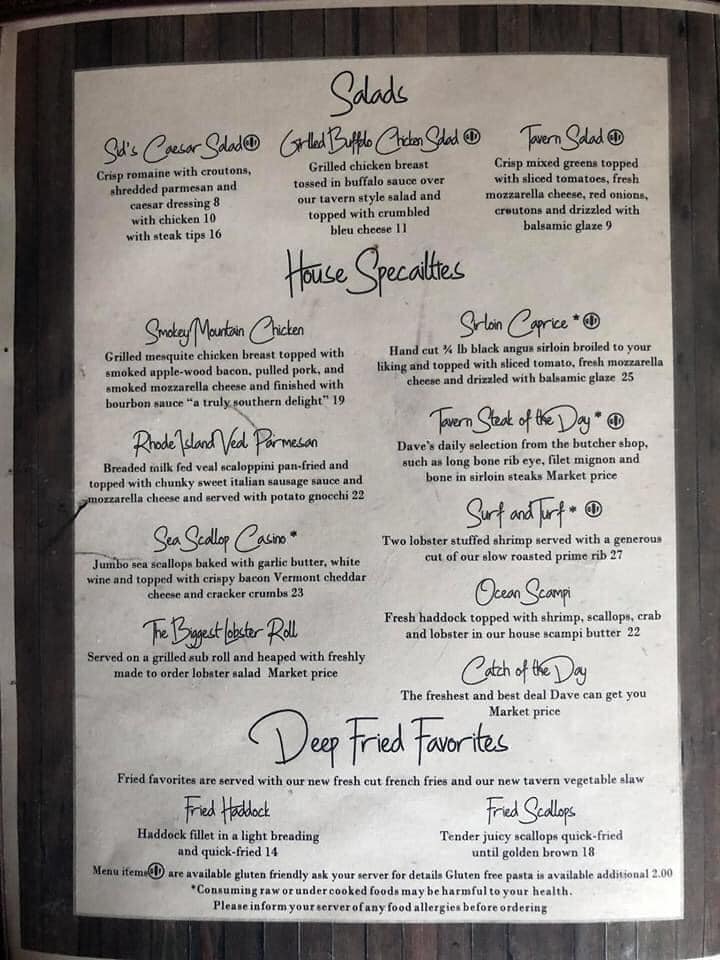 Salads
Sid's Caesar Salad
Crisp romaine with croutons,
shredded parmesan and
caesar dressing 8
with chicken 10
with steak tips 16
Grilled Buffalo Chicken Salad
Grilled chicken breast
tossed in buffalo sauce over
our tavern style salad and
topped with crumbled
bleu cheese 11
Tavern Salad
Crisp mixed greens topped
with sliced tomatoes, fresh
mozzarella cheese, red onions,
croutons and drizzled with
balsamic glaze 9
House Specailties
Smokey Mountain Chicken
Grilled mesquite chicken breast topped with
smoked apple-wood bacon, pulled pork, and
smoked mozzarella cheese and finished with
bourbon sauce “a truly southern delight” 19
Rhode Island Veal Parmesan
Breaded milk fed veal scaloppini pan-fried and
topped with chunky sweet italian sausage sauce and
mozzarella cheese and served with potato gnocchi 22
Sea Scallop Casino *
Jumbo sea scallops baked with garlic butter, white
wine and topped with crispy bacon Vermont cheddar
cheese and cracker crumbs 23
The Biggest Lobster Roll
Served on a grilled sub roll and heaped with freshly
made to order lobster salad Market price
Sirloin Caprice *
Hand cut ¾ lb black angus sirloin broiled to your
liking and topped with sliced tomato, fresh mozzarella
cheese and drizzled with balsamic glaze 25
Tavern Steak of the Day *
Dave's daily selection from the butcher shop,
such as long bone rib eye, filet mignon and
bone in sirloin steaks Market price
Surf and Turf *
Two lobster stuffed shrimp served with a generous
cut of our slow roasted prime rib 27
Ocean Scampi
Fresh haddock topped with shrimp, scallops, crab
and lobster in our house scampi butter 22
Catch of the Day
The freshest and best deal Dave can get you
Market price
Deep Fried Favorites
Fried favorites are served with our new fresh cut french fries and our new tavern vegetable slaw
Fried Haddock
Haddock fillet in a light breading
and quick-fried 14
Fried Scallops
Tender juicy scallops quick-fried
until golden brown 18
Menu items are available gluten friendly ask your server for details Gluten free pasta is available additional 2.00
*Consuming raw or under cooked foods may be harmful to your health.
Please inform your server of any food allergies before ordering